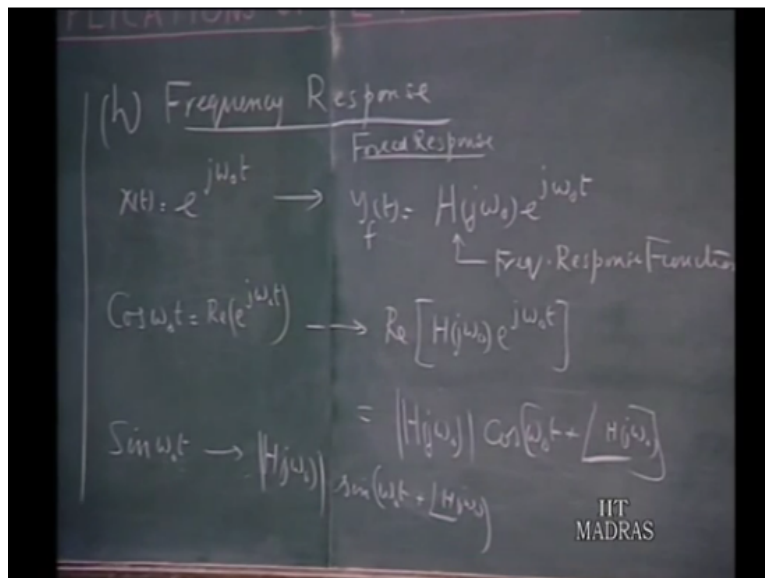 PLICATIONS OF
(h) Frequency Response
Forced Response
x(t) = e^{jω₀t} → y_f(t) = H(jω₀) e^{jω₀t}
Freq. Response Function
Cos ω₀t = Re(e^{jω₀t}) → Re [H(jω₀) e^{jω₀t}]
= |H(jω₀)| cos[ω₀t + ∠H(jω₀)]
Sin ω₀t → |H(jω₀)| sin(ω₀t + ∠H(jω₀))
IIT
MADRAS